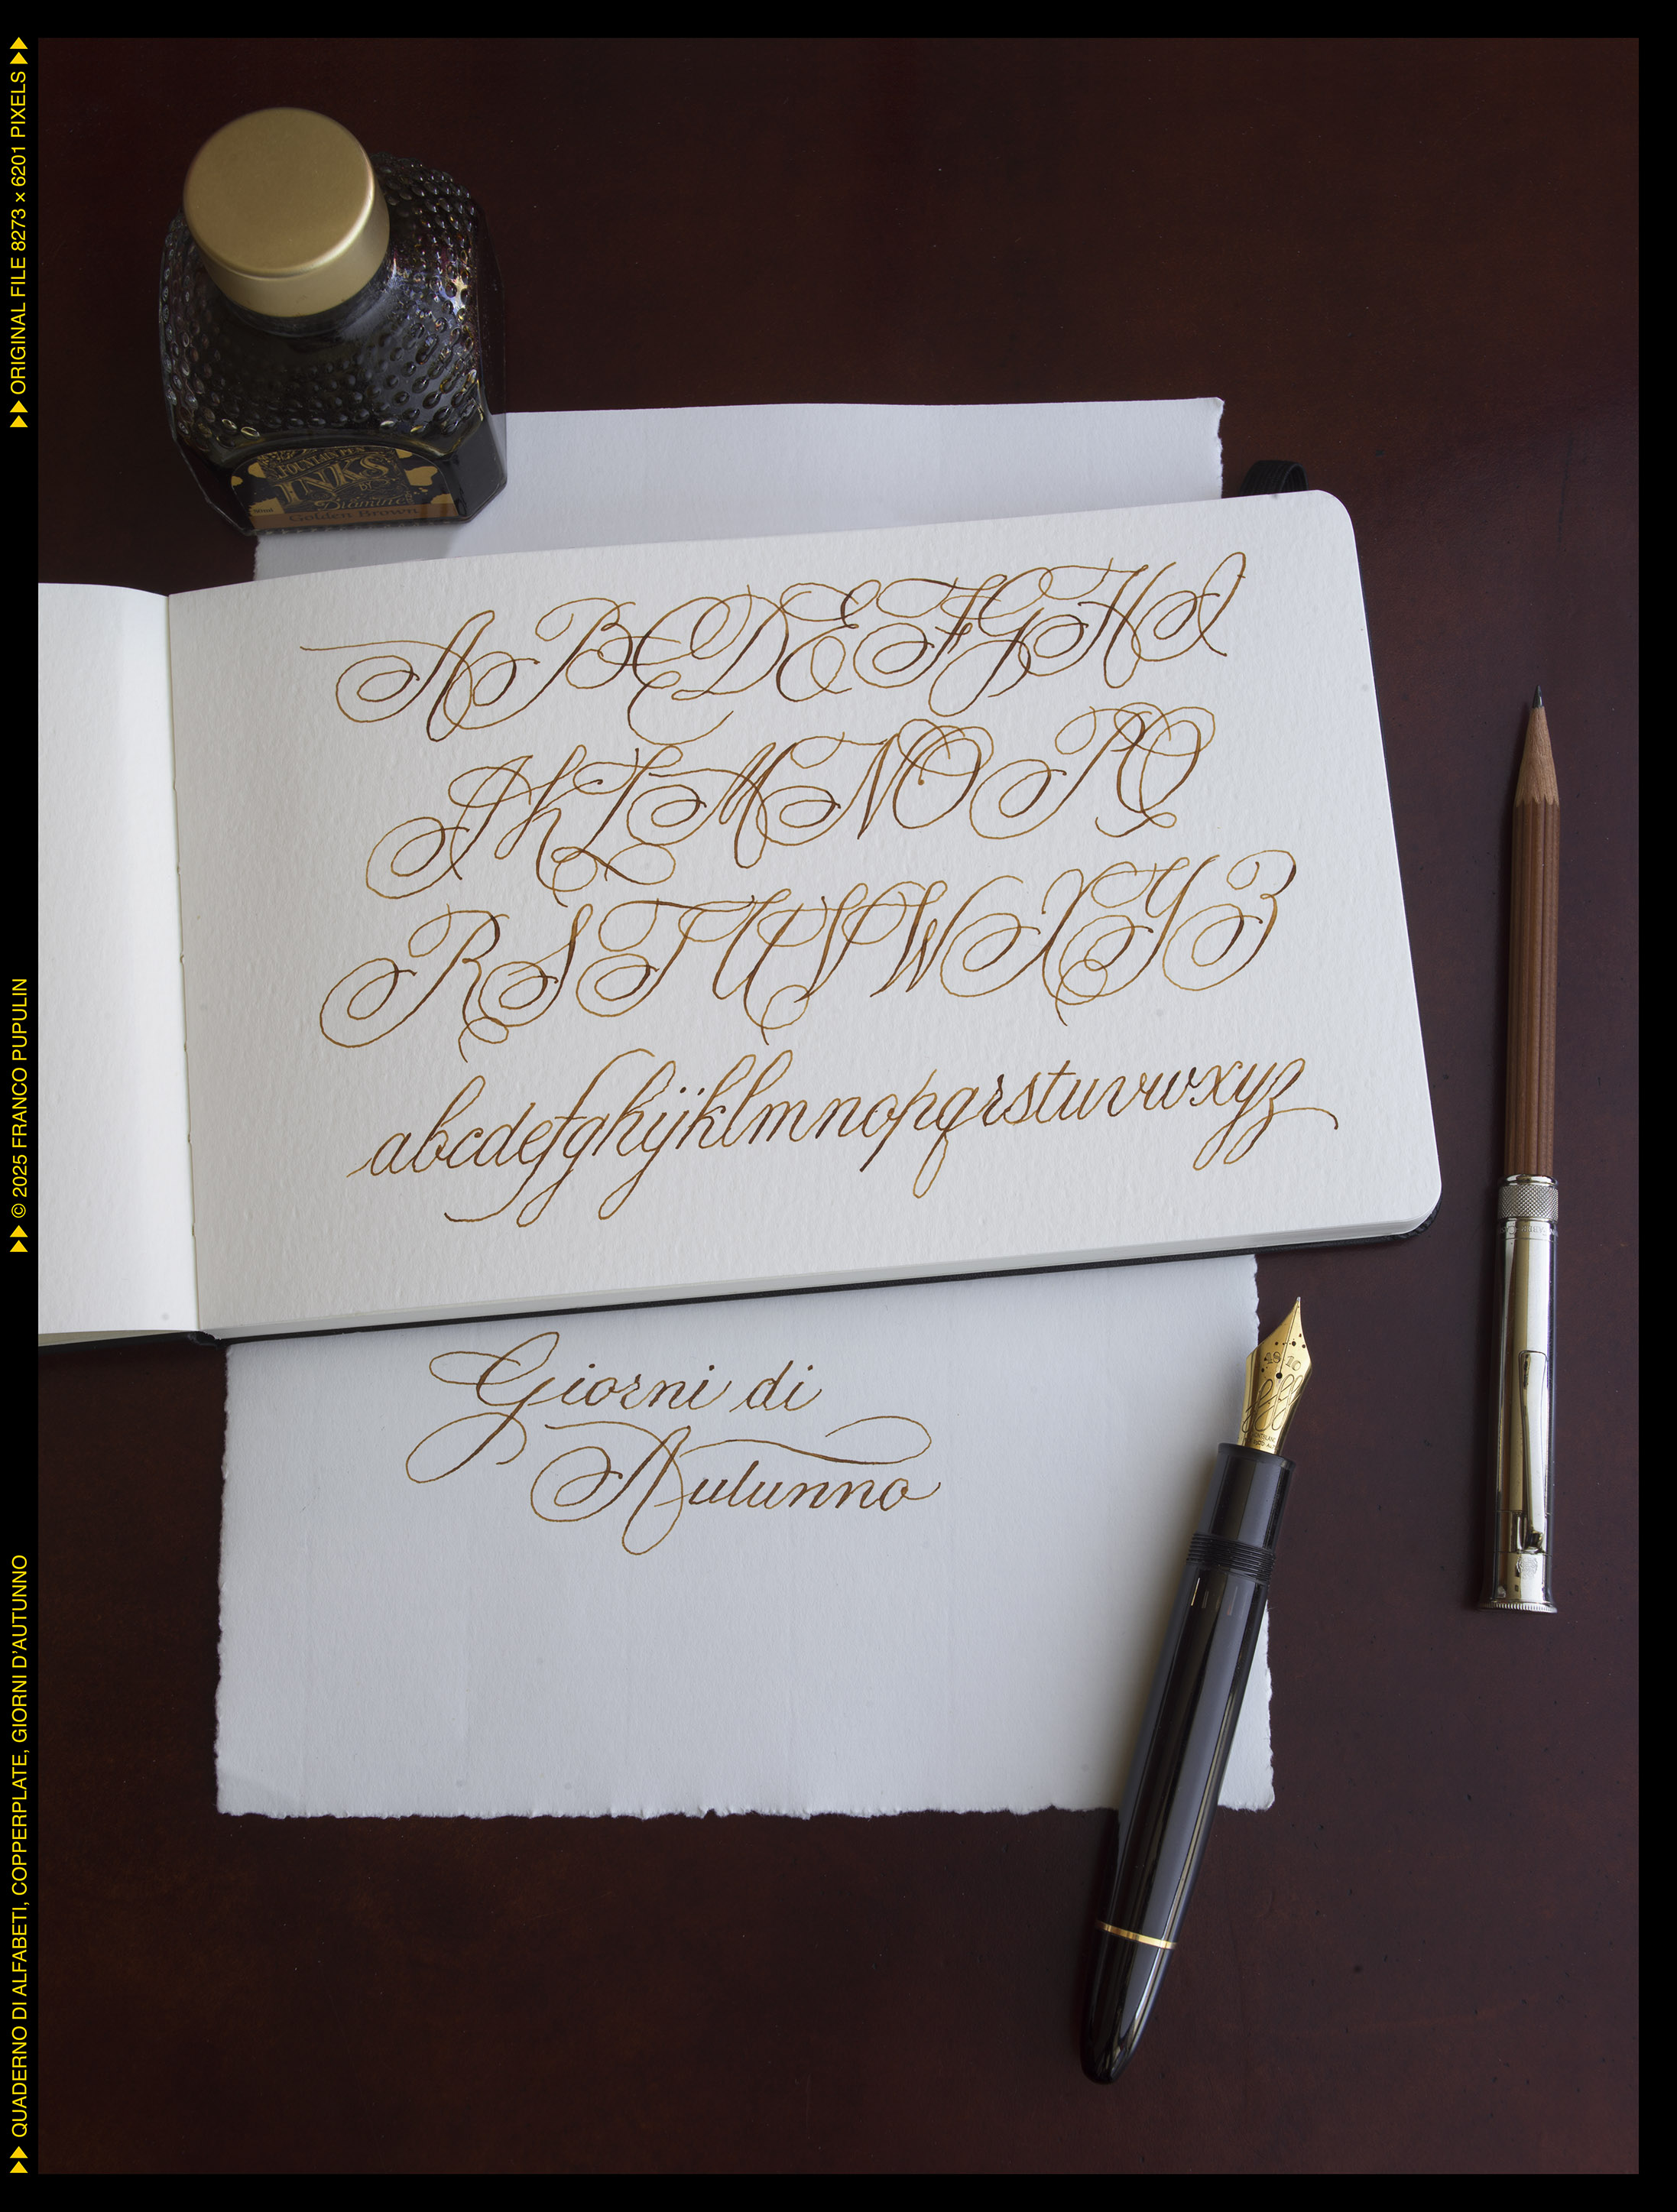 ORIGINAL FILE 8273 × 6201 PIXELS
© 2025 FRANCO PUPULIN
QUADERNO DI ALFABETI, COPPERPLATE, GIORNI D'AUTUNNO
FOUNTAIN PEN
INKS
BY
Diamine
Golden Brown
A B C D E F G H I
J K L M N O P Q
R S T U V W X Y Z
abcdefghijklmnopqrstuvwxyz
Giorni di
Autunno
4810